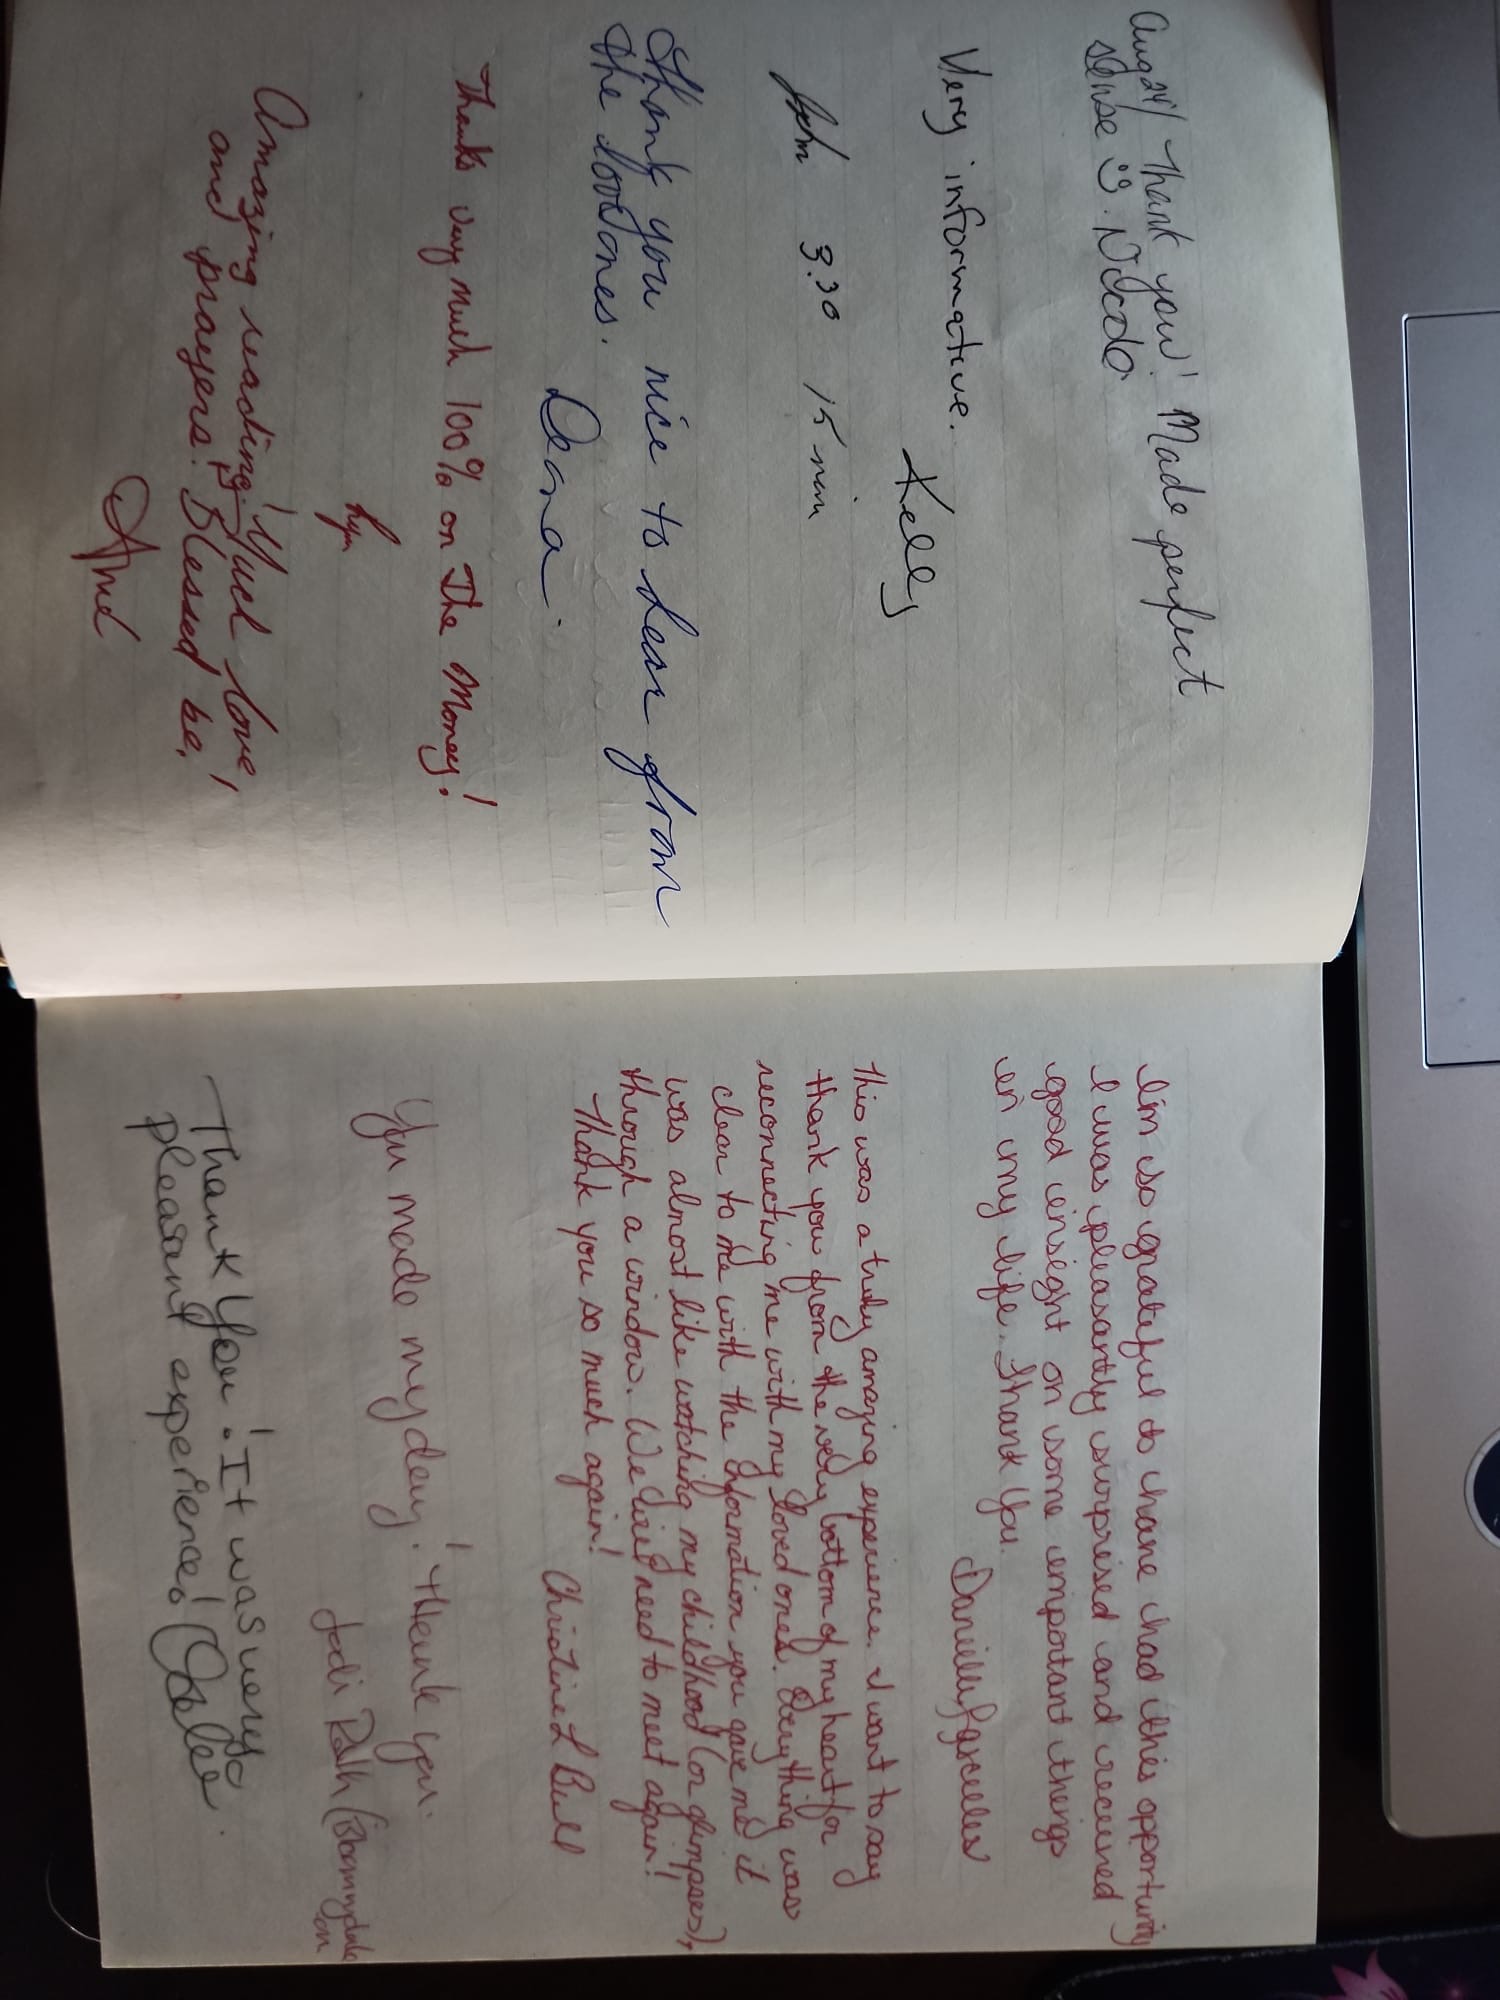 Aug 24/ Thank you! Made perfect
sense ☺. Nicole
Very informative.
Kelly
John 3:30 15 min
Thank you nice to hear from
the loved ones.
Deana.
Thanks very much 100% on The Money!
Amazing reading! Much love,
and prayers! Blessed be,
I'm so grateful to have had this opportunity
I was pleasantly surprised and received
good insight on some important things
in my life. Thank You.
This was a truly amazing experience. I want to say
thank you from the very bottom of my heart for
reconnecting me with my loved ones. Everything was
clear to me with the information you gave me it
was almost like watching my childhood (or glimpses),
through a window. We will need to meet again!
Thank you so much again!
Christine L Bull
You made my day! Thank you.
Jodi
Thank You! It was very
pleasant experience!